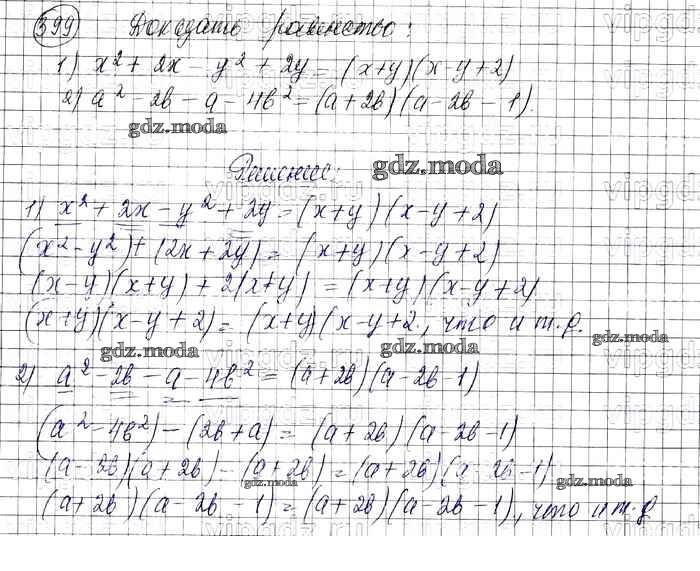 399 Доказать равенство:
1) x² + 2x - y² + 2y = (x+y)(x-y+2)
2) a² - 2b - a - 4b² = (a+2b)(a-2b-1).
gdz.moda
Решение: gdz.moda
1) x² + 2x - y² + 2y = (x+y)(x-y+2)
(x² - y²) + (2x + 2y) = (x+y)(x-y+2)
(x-y)(x+y) + 2(x+y) = (x+y)(x-y+2)
(x+y)(x-y+2) = (x+y)(x-y+2, что и т.д.
gdz.moda gdz.moda gdz.moda
2) a² - 2b - a - 4b² = (a+2b)(a-2b-1)
(a² - 4b²) - (2b+a) = (a+2b)(a-2b-1)
(a-2b)(a+2b) - (a+2b) = (a+2b)(a-2b-1)
gdz.moda gdz.moda
(a+2b)(a-2b-1) = (a+2b)(a-2b-1), что и т.д